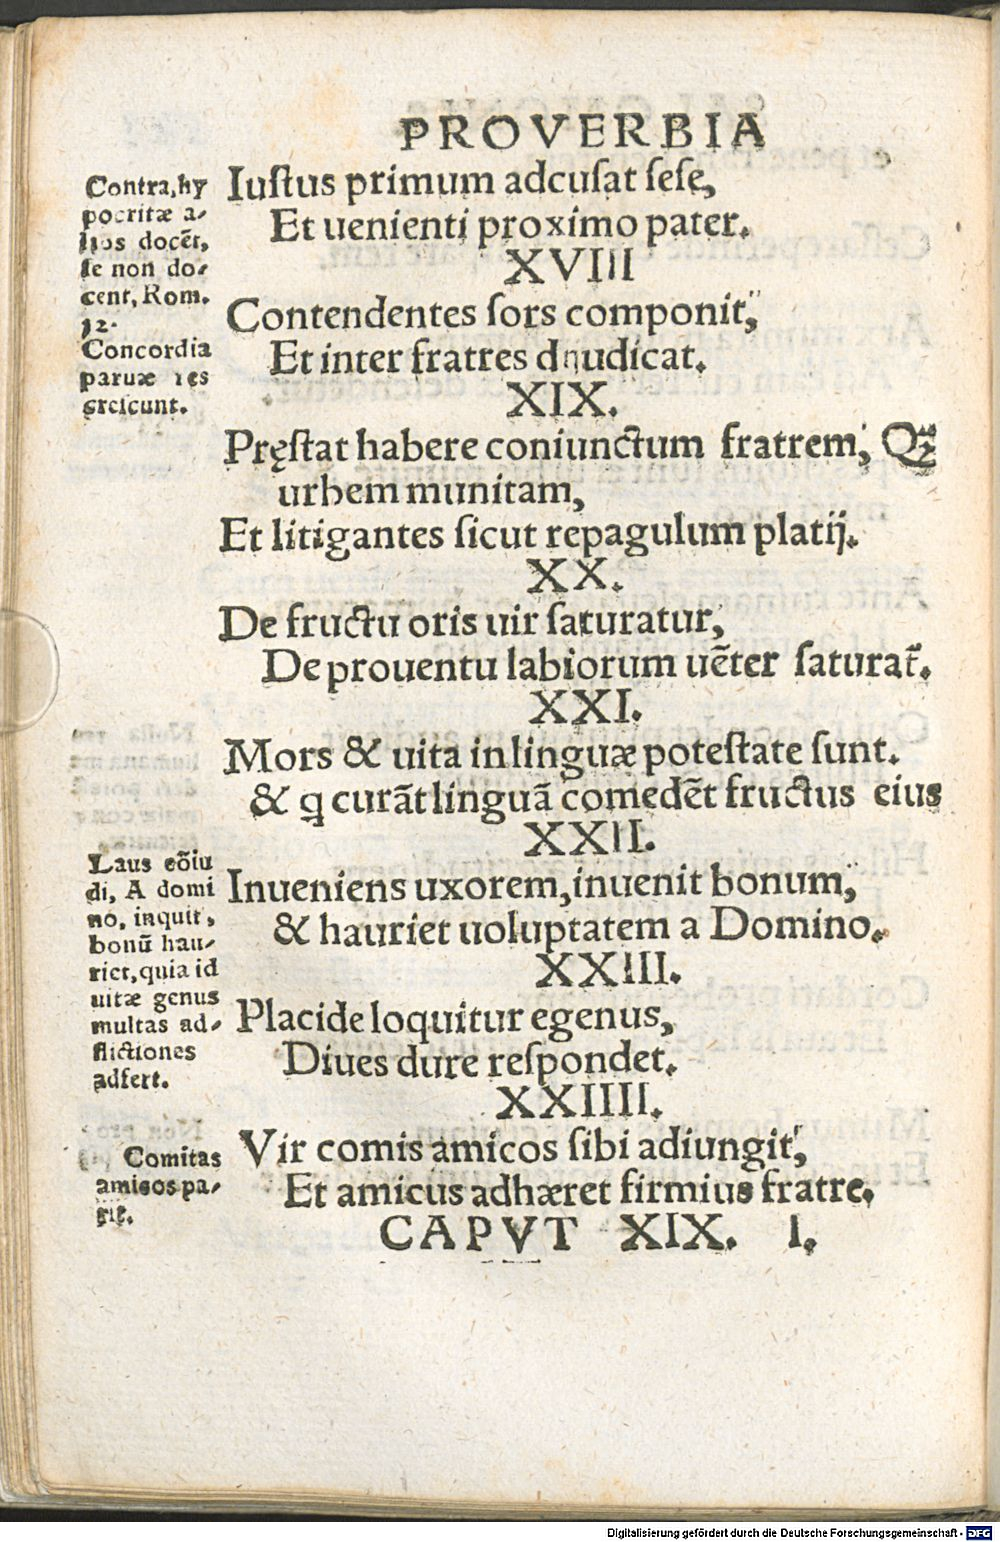 PROVERBIA
Contra, hy
pocritæ a-
lios docēt,
se non do-
cent, Rom.
12.
Concordia
paruæ res
crescunt.
Iustus primum adcusat sese,
Et uenienti proximo pater.
XVIII
Contendentes sors componit,
Et inter fratres diiudicat.
XIX.
Pręstat habere coniunctum fratrem, Qꝫ
urbem munitam,
Et litigantes sicut repagulum platij.
XX.
De fructu oris uir saturatur,
De prouentu labiorum uēter saturat᷑.
XXI.
Mors & uita in linguæ potestate sunt.
& q curāt linguā comedēt fructus eius
XXII.
Laus cōiu
di, A domi
no, inquit,
bonū hau-
riet, quia id
uitæ genus
multas ad-
flictiones
adfert.
Inueniens uxorem, inuenit bonum,
& hauriet uoluptatem a Domino.
XXIII.
Placide loquitur egenus,
Diues dure respondet.
XXIIII.
Comitas
amicos pa-
rit.
Vir comis amicos sibi adiungit,
Et amicus adhæret firmius fratre.
CAPVT XIX. I.
Digitalisierung gefördert durch die Deutsche Forschungsgemeinschaft - DFG